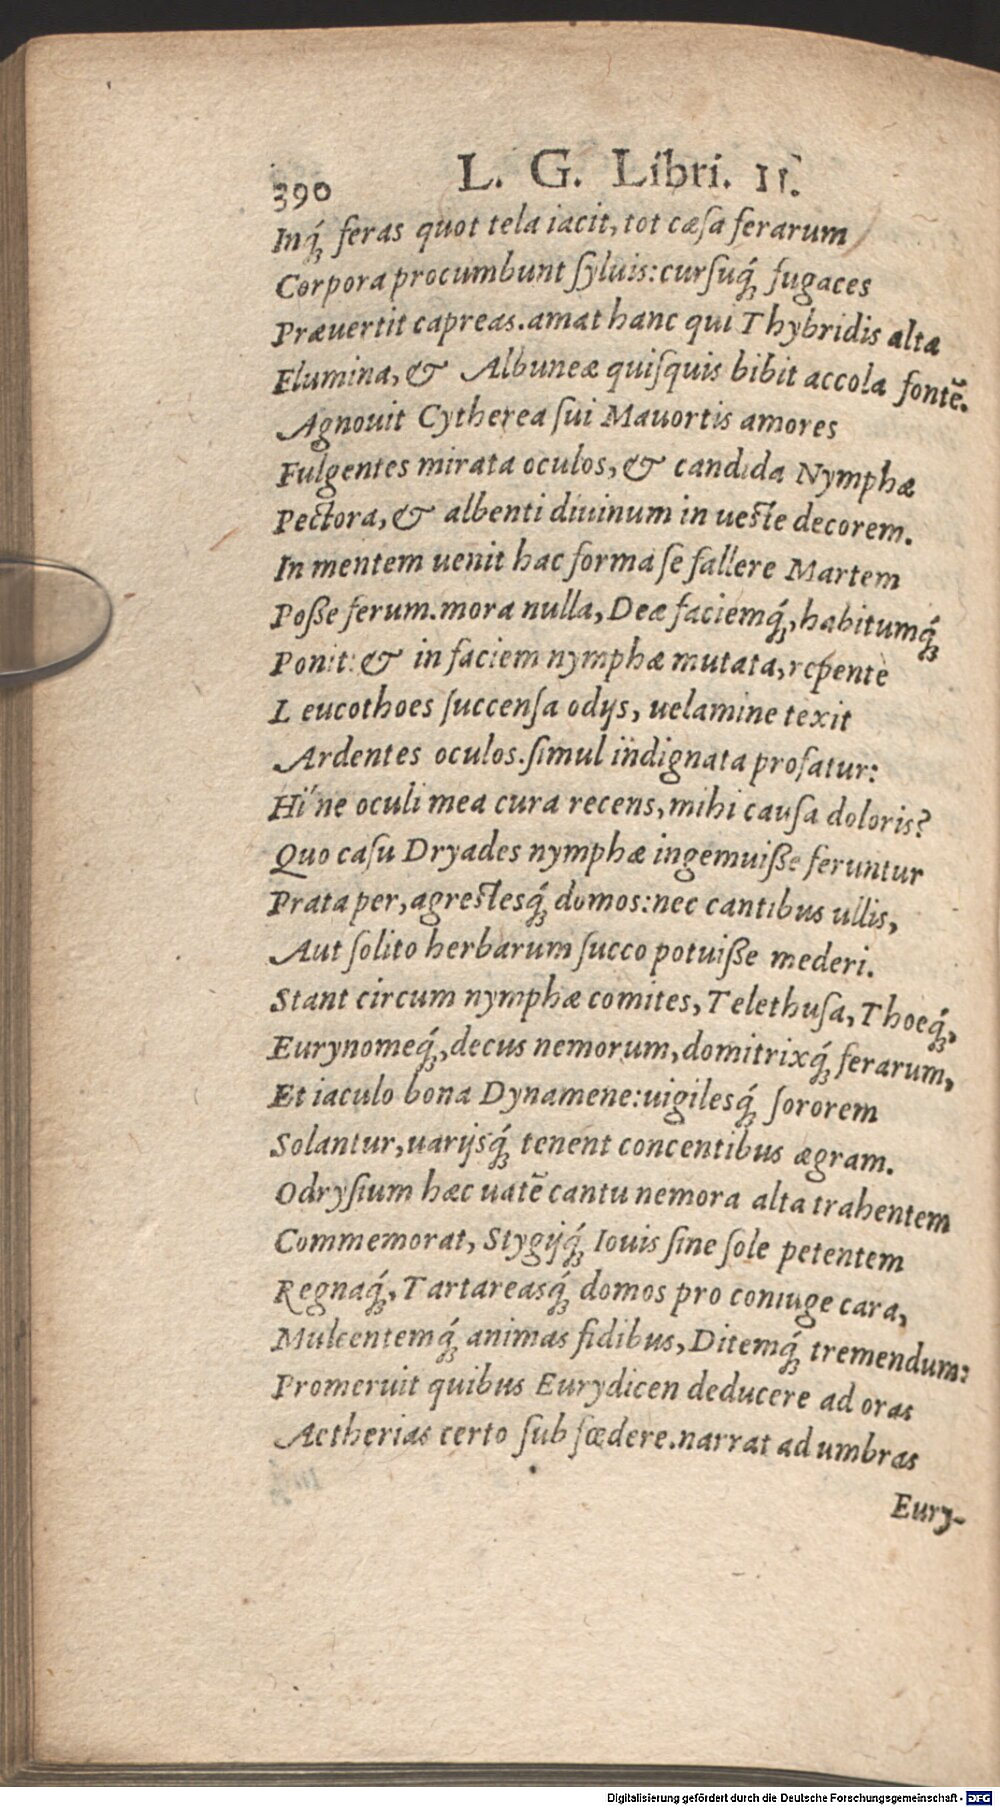 390 L. G. Libri. II.
Inq́ꝫ feras quot tela iacit, tot cæsa ferarum
Corpora procumbunt syluis: cursuq́ꝫ fugaces
Præuertit capreas. amat hanc qui Thybridis alta
Flumina, & Albuneæ quisquis bibit accola fontē.
Agnouit Cytherea sui Mauortis amores
Fulgentes mirata oculos, & candida Nymphæ
Pectora, & albenti diuinum in ueste decorem.
In mentem uenit hac forma se fallere Martem
Poße ferum. mora nulla, Deæ faciemq́ꝫ, habitumq́ꝫ
Ponit: & in faciem nymphæ mutata, repente
Leucothoes succensa odijs, uelamine texit
Ardentes oculos. simul indignata profatur:
Hi'ne oculi mea cura recens, mihi causa doloris?
Quo casu Dryades nymphæ ingemuiße feruntur
Prata per, agrestesq́ꝫ domos: nec cantibus ullis,
Aut solito herbarum succo potuiße mederi.
Stant circum nymphæ comites, Telethusa, Thoeq́ꝫ,
Eurynomeq́ꝫ, decus nemorum, domitrixq́ꝫ ferarum,
Et iaculo bona Dynamene: uigilesq́ꝫ sororem
Solantur, uarijsq́ꝫ tenent concentibus ægram.
Odrysium hæc uatē cantu nemora alta trahentem
Commemorat, Stygijq́ꝫ Iouis sine sole petentem
Regnaq́ꝫ, Tartareasq́ꝫ domos pro coniuge cara,
Mulcentemq́ꝫ animas fidibus, Ditemq́ꝫ tremendum:
Promeruit quibus Eurydicen deducere ad oras
Aetherias certo sub fœdere. narrat ad umbras
Eury-
Digitalisierung gefördert durch die Deutsche Forschungsgemeinschaft - DFG